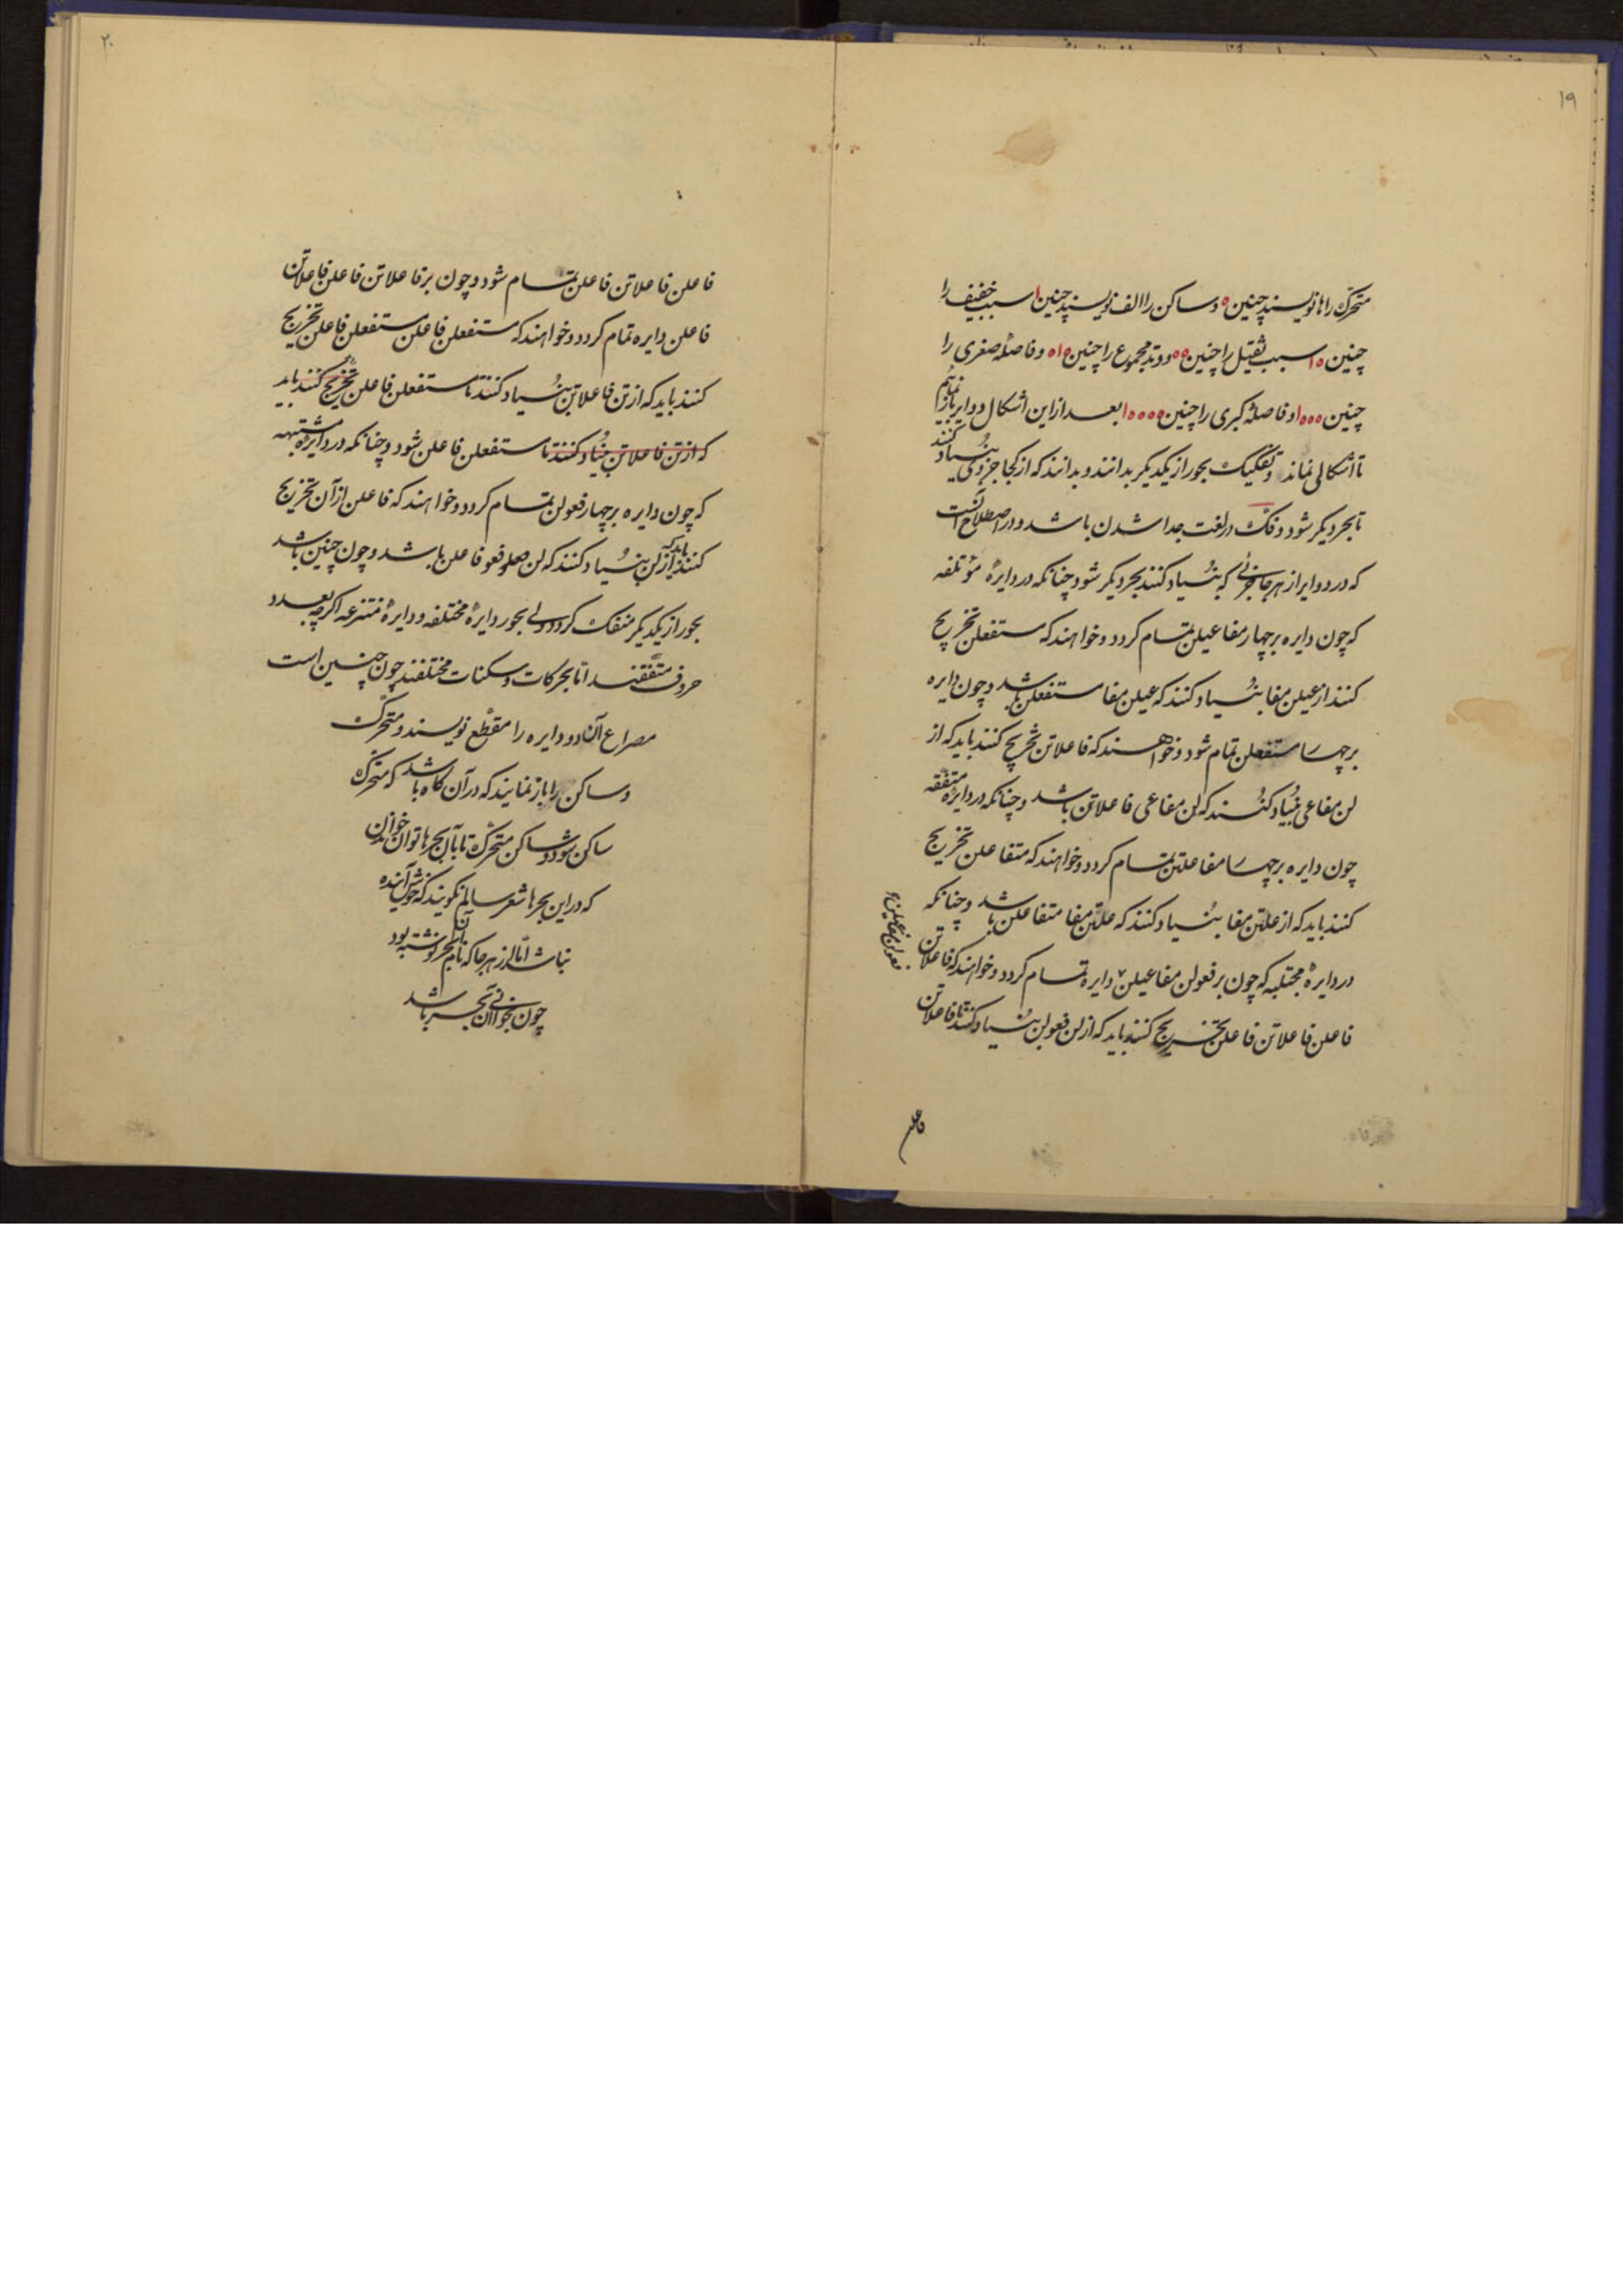 ۱۹
متحرک را ها نویسند چنین ه و ساکن را الف نویسند چنین ا سبب خفیف را
چنین ه ا سبب ثقیل را چنین ه ه و وتد مجموع را چنین ه ه ا و فاصلهٔ صغری را
چنین ه ه ه ا و فاصلهٔ کبری را چنین ه ه ه ه ا بعد از این اشکال دوایر باز نمائیم
تا اشکالی نماند و تفکیک بحور از یکدیگر بدانند و بدانند که از کجا جزوی بنیاد کنند
تا بحر دیگر شود و فک در لغت جدا شدن باشد و در اصطلاح آنست
که در دوایر از هر جا جزئی که بنیاد کنند بحر دیگر شود چنانکه در دایرهٔ مؤتلفه
که چون دایره بر چهار مفاعیلن تمام کردد و خواهند که مستفعلن تخریج
کنند از عیلن مفا بنیاد کنند که عیلن مفا مستفعلن باشد و چون دایره
بر چهار مستفعلن تمام شود و خواهند که فاعلاتن تخریج کنند باید که از
لن مفاعی بنیاد کنند که لن مفاعی فاعلاتن باشد و چنانکه در دایرهٔ متفقه
چون دایره بر چهار مفاعلتن تمام کردد و خواهند که متفاعلن تخریج
کنند باید که از علتن مفا بنیاد کنند که علتن مفا متفاعلن باشد و چنانکه
در دایرهٔ مجتلبه که چون بر فعولن مفاعیلن دایره تمام کردد و خواهند که فاعلاتن
فعولن مفاعیلن
فاعلن فاعلاتن فاعلن تخریج کنند باید که از لن فعولن بنیاد کنند تا فاعلاتن
فاعلن
۲۰
فاعلن فاعلاتن فاعلن تمام شود و چون بر فاعلاتن فاعلن فاعلاتن
فاعلن دایره تمام کردد و خواهند که مستفعلن فاعلن مستفعلن فاعلن تخریج
کنند باید که از تن فاعلاتن بنیاد کنند تا مستفعلن فاعلن تخریج کنند باید
که از تن فاعلاتن بنیاد کنند تا مستفعلن فاعلن شود و چنانکه در دایرهٔ مشتبهه
که چون دایره بر چهار فعولن تمام کردد و خواهند که فاعلن از آن تخریج
کنند باید که از لن بنیاد کنند که لن فعو فاعلن باشد و چون چنین باشد
بحور از یکدیگر منفک کردد ولی بحور دایرهٔ مختلفه و دایرهٔ منتزعه اکرچه بعدد
حروف متفقند اما بحرکات و سکنات مختلفند چون چنین است
مصراع آن دو دایره را مقطع نویسند و متحرک
و ساکن را باز نمایند که در آن کاه باشد که متحرک
ساکن شود و ساکن متحرک تا بآن بحرها توان خواندن
که در این بحرها شعر سالم نکویند که خوش آینده
نباشد اما از هر جا که نام آن بحر نوشته بود
چون بخوانی آن بحر باشد